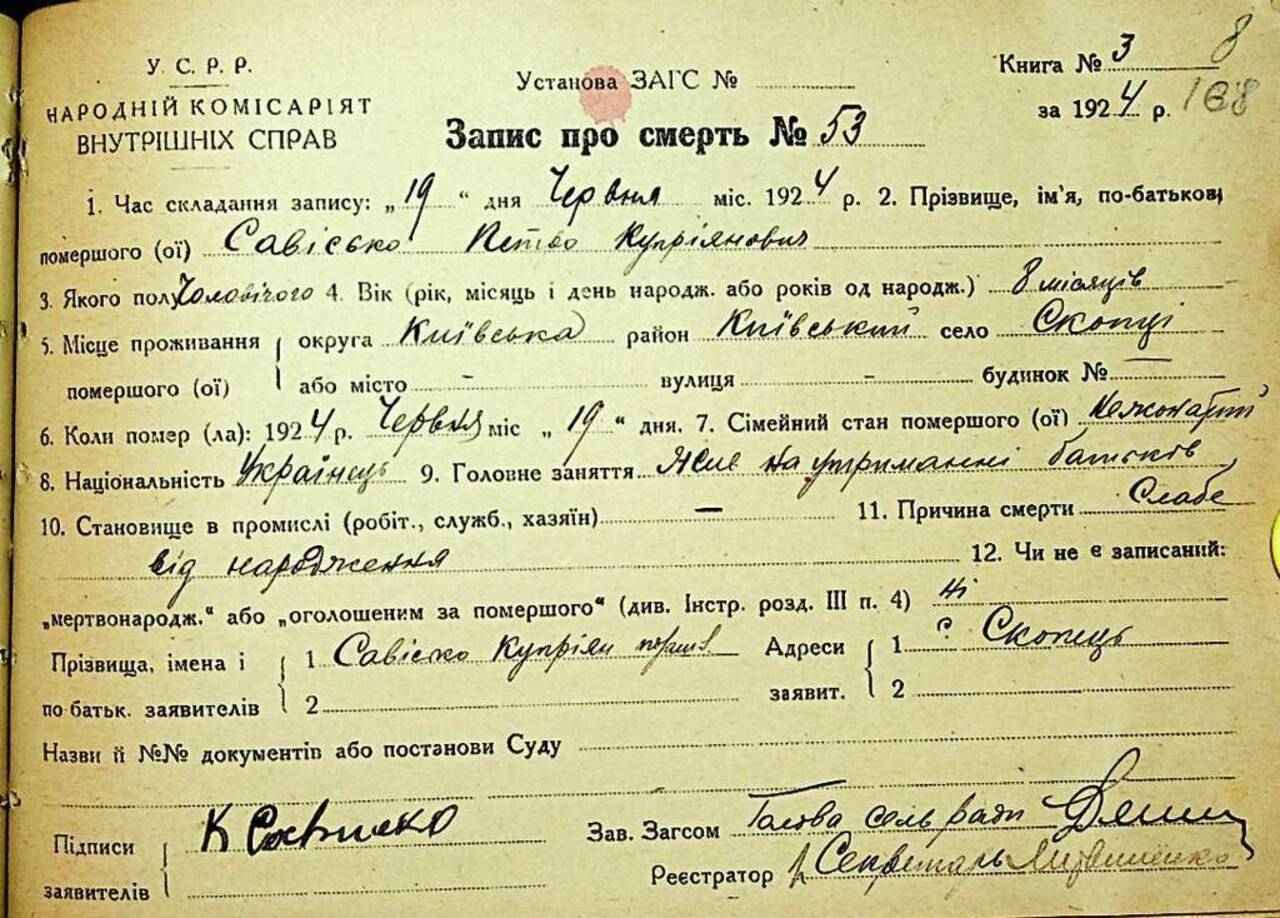 У. С. Р. Р.
НАРОДНІЙ КОМІСАРІЯТ
ВНУТРІШНІХ СПРАВ
Установа ЗАГС №
Книга № 3 8
за 1924 р. 168
Запис про смерть № 53
1. Час складання запису: „19“ дня Червня міс. 1924 р. 2. Прізвище, ім'я, по-батькові
помершого (ої) Савісько Петро Купріянович
3. Якого полу Чоловічого 4. Вік (рік, місяць і день народж. або років од народж.) 8 місяців
5. Місце проживання округа Київська район Київський село Скопці
помершого (ої) або місто - вулиця - будинок № —
6. Коли помер (ла): 1924 р. Червня міс „19“ дня. 7. Сімейний стан помершого (ої) Нежонатий
8. Національність Українець 9. Головне заняття Живе на утриманні батьків
10. Становище в промислі (робіт., служб., хазяїн) — 11. Причина смерти Слабе
від народження 12. Чи не є записаний:
„мертвонародж.“ або „оголошеним за помершого“ (див. Інстр. розд. III п. 4) Ні
Прізвища, імена і 1 Савісько Купріян Адреси 1 с. Скопець
по батьк. заявителів 2 заявит. 2
Назви й №№ документів або постанови Суду
Підписи К Сависько Зав. Загсом Голова сельради
заявителів Реєстратор Секретарь